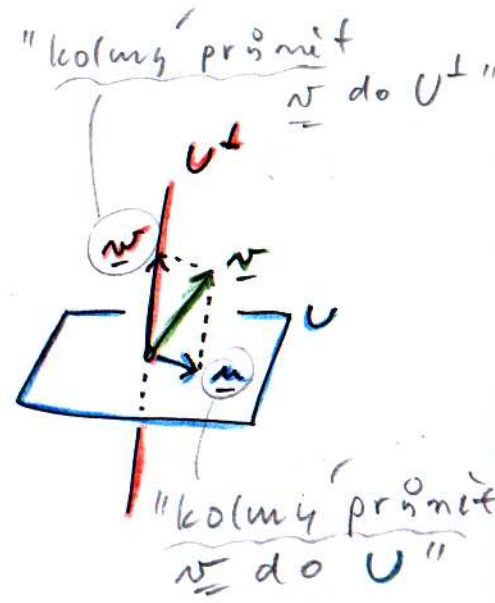 "kolmý průmět
v do U⊥"
U⊥
w
v
U
u
"kolmý průmět
v do U"